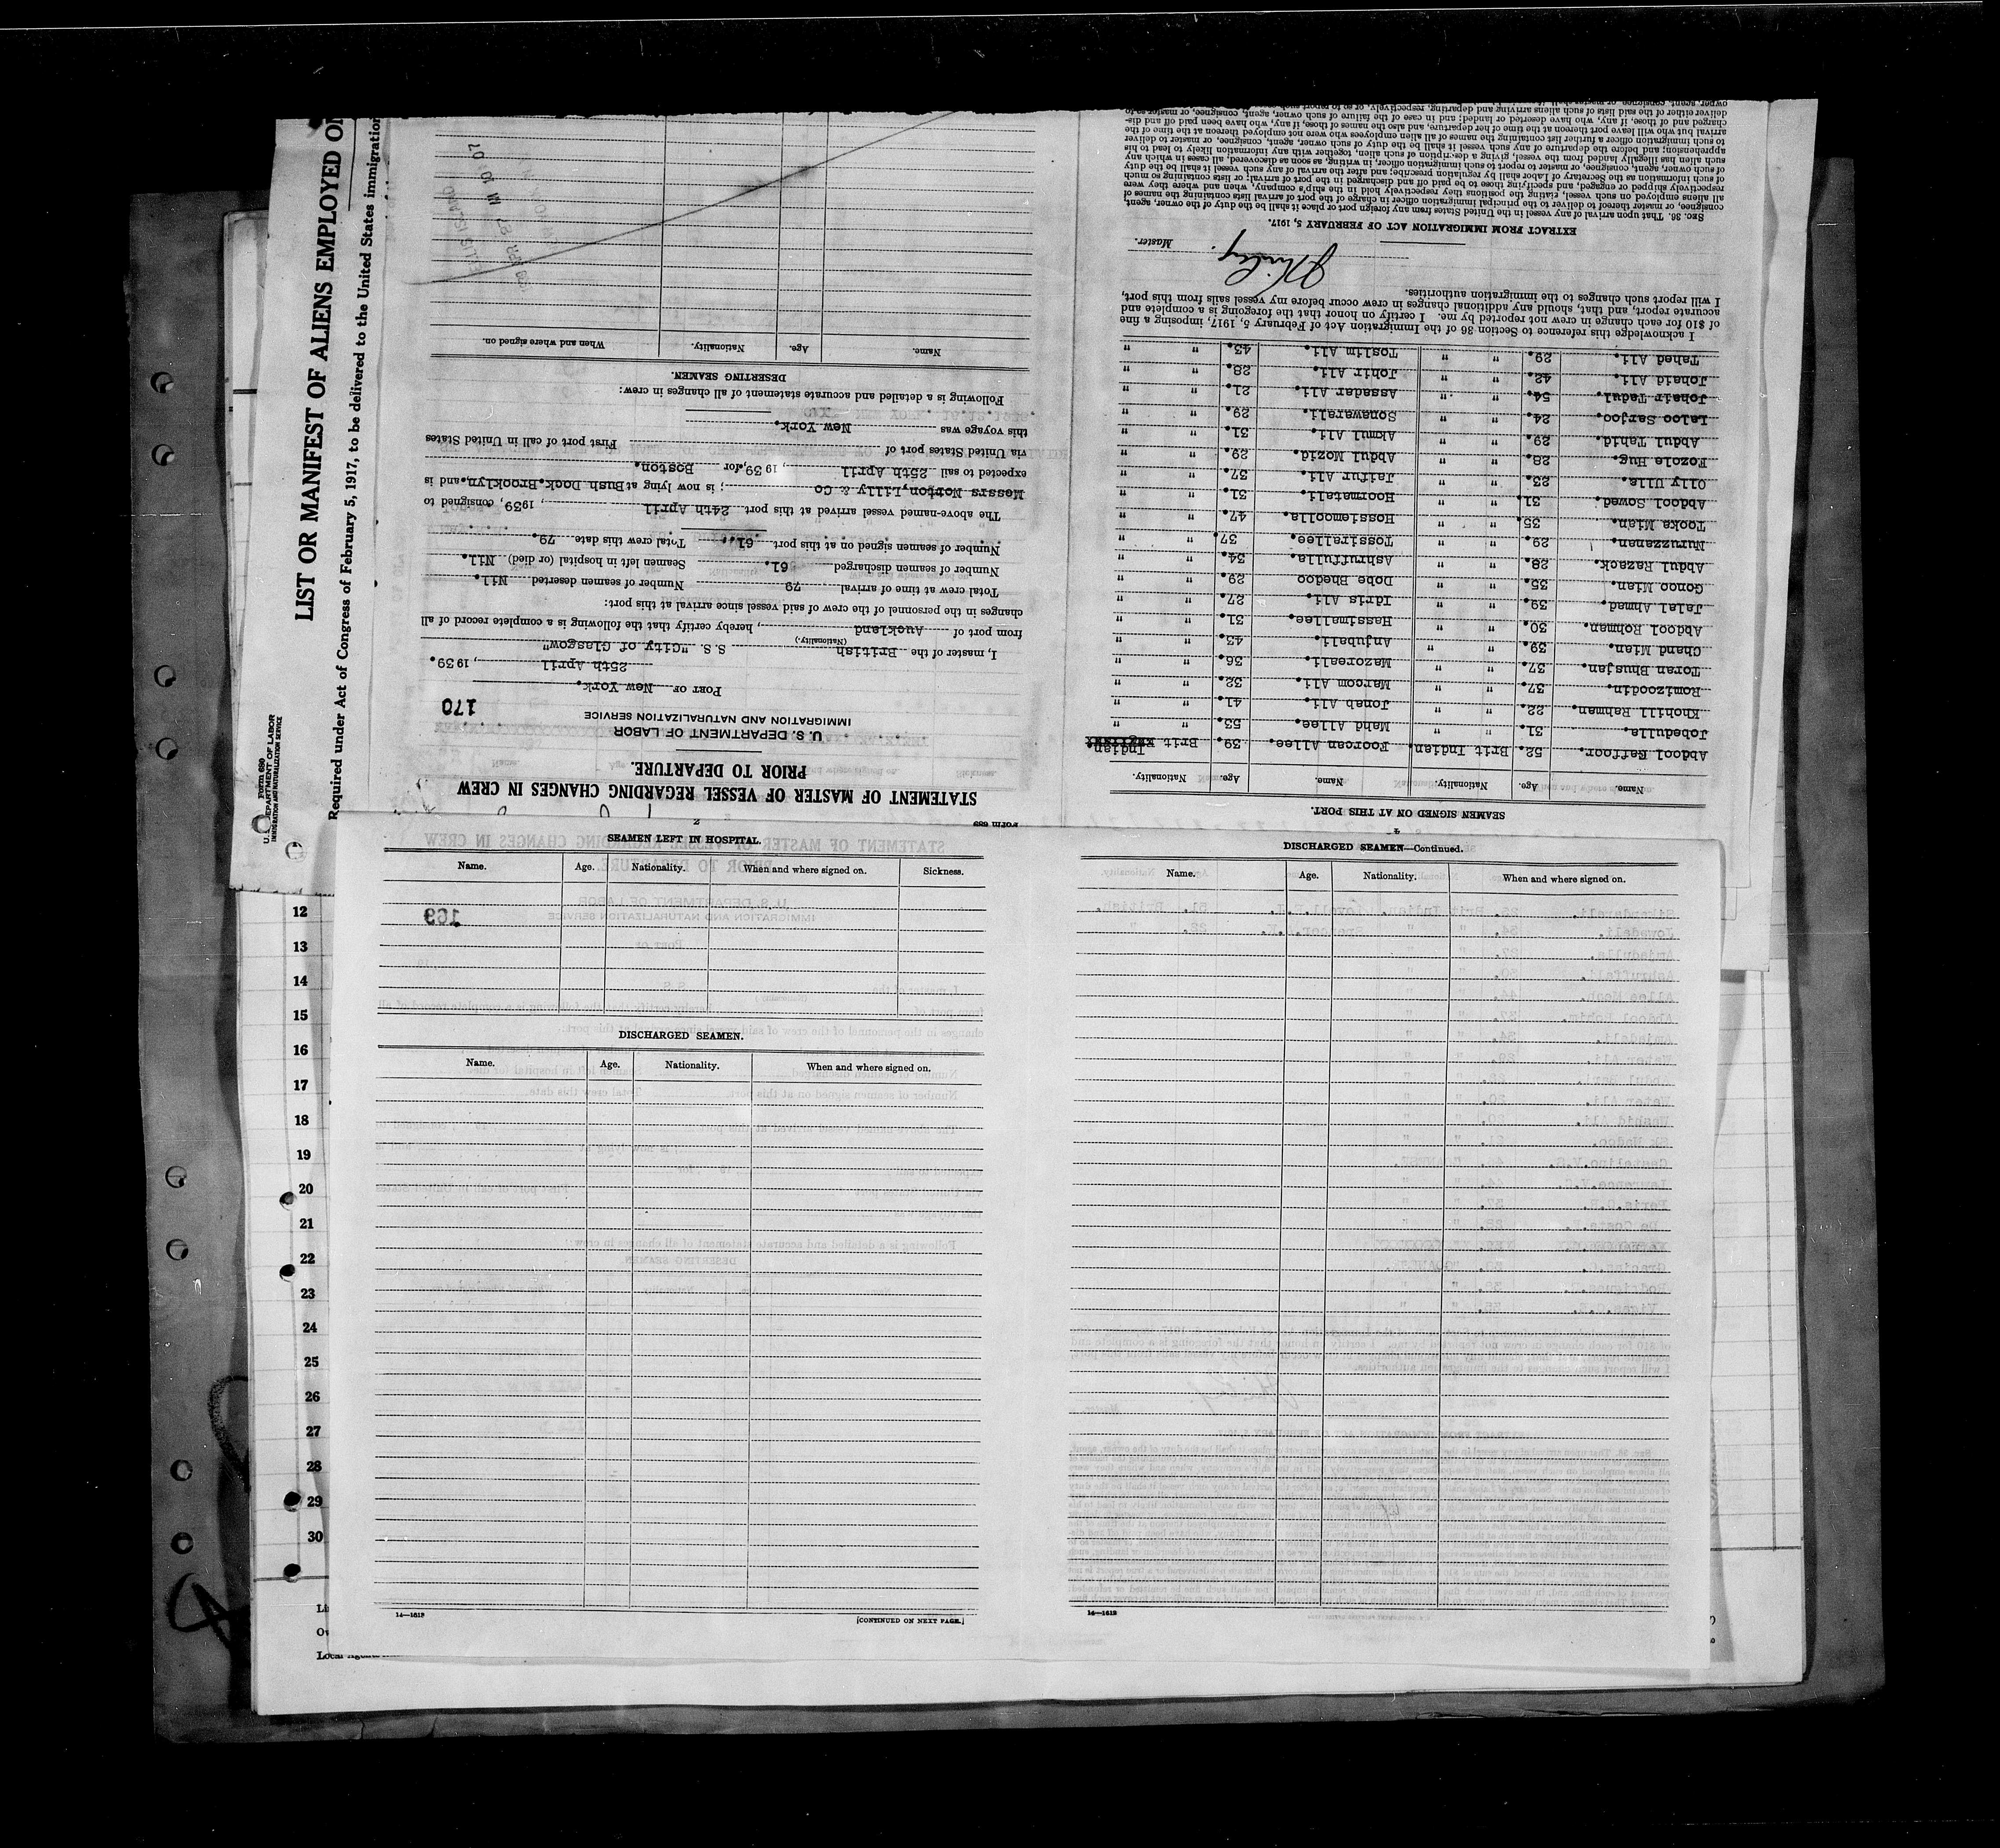 LIST OR MANIFEST OF ALIENS EMPLOYED ON
Required under Act of Congress of February 5, 1917, to be delivered to the United States immigration
Form 680
U. S. DEPARTMENT OF LABOR
IMMIGRATION AND NATURALIZATION SERVICE
Form 689
STATEMENT OF MASTER OF VESSEL REGARDING CHANGES IN CREW
PRIOR TO DEPARTURE.
U. S. DEPARTMENT OF LABOR
IMMIGRATION AND NATURALIZATION SERVICE
170
PORT OF New York.
25th April, 1939.
I, master of the British S.S. "City of Glasgow"
(Nationality.)
from port of Auckland, hereby certify that the following is a complete record of all
changes in the personnel of the crew of said vessel since arrival at this port:
Total crew at time of arrival 79 Number of seamen deserted Nil.
Number of seamen discharged 61. Seamen left in hospital (or died) Nil.
Number of seamen signed on at this port 61. Total crew this date 79.
The above-named vessel arrived at this port 24th April, 1939, consigned to
Messrs Norton,Lilly & Co; is now lying at Bush Dock.Brooklyn. and is
expected to sail 25th April, 1939, for Boston.
via United States port of First port of call in United States
this voyage was New York.
Following is a detailed and accurate statement of all changes in crew:
DESERTING SEAMEN.
Name. Age. Nationality. When and where signed on.
4
SEAMEN SIGNED ON AT THIS PORT.
Name. Age. Nationality. Name. Age. Nationality.
Abdool Gaffoor. 52. Brit Indian. Fooroan Allee. 39. Brit Indian.
Jobedulla. 31. " " Mehd Allee. 53. " "
Khohill Rahman. 22. " " Joneb Ali. 41. " "
Romizoodin. 37. " " Marcom Ali. 32. " "
Toran Bhusjan. 37. " " Mazoreali. 36. " "
Chand Mian. 39. " " Anjubali. 43. " "
Abdool Rohman. 30. " " Hassimallee. 31. " "
Jalal Ahmad. 39. " " Idris Ali. 27. " "
Gonoo Mian. 35. " " Dobe Bhedoo 29. " "
Abdul Razack. 28. " " Ashruffulla. 34. " "
Nuruzzanan. 29. " " Tossirallee. 37. " "
Tooka Mian. 35. " " Hossiemoolla. 47. " "
Abdool Sowed. 31. " " Hoormatali. 31. " "
Olly Ulla. 23. " " Jaifur Ali. 37. " "
Fozole Huq. 28. " " Abdul Mozid. 29. " "
Abdul Tahid. 29. " " Akmul Ali. 31. " "
Laloo Sarjoo. 24. " " Sonawarali. 29. " "
Johair Tadul. 54. " " Assadar Ali. 21. " "
Johaid Ali. 42. " " Johir Ali. 28. " "
Tahed Ali. 29. " " Toslim Ali. 43. " "
I acknowledge this reference to Section 36 of the Immigration Act of February 5, 1917, imposing a fine
of $10 for each change in crew not reported by me. I certify on honor that the foregoing is a complete and
accurate report, and that, should any additional changes in crew occur before my vessel sails from this port,
I will report such changes to the immigration authorities.
Master.
EXTRACT FROM IMMIGRATION ACT OF FEBRUARY 5, 1917.
Sec. 36. That upon arrival of any vessel in the United States from any foreign port or place it shall be the duty of the owner, agent,
consignee, or master thereof to deliver to the principal immigration officer in charge of the port of arrival lists containing the names of
all aliens employed on such vessel, stating the positions they respectively hold in the ship's company, when and where they were
respectively shipped or engaged, and specifying those to be paid off and discharged in the port of arrival; or lists containing so much
of such information as the Secretary of Labor shall by regulation prescribe; and after the arrival of any such vessel it shall be the duty
of such owner, agent, consignee, or master to report to such immigration officer, in writing, as soon as discovered, all cases in which any
such alien has illegally landed from the vessel, giving a description of such alien, together with any information likely to lead to his
apprehension; and before the departure of any such vessel it shall be the duty of such owner, agent, consignee, or master to deliver
to such immigration officer a further list containing the names of all alien employees who were not employed thereon at the time of the
arrival but who will leave port thereon at the time of her departure, and also the names of those, if any, who have been paid off and dis-
charged and of those, if any, who have deserted or landed; and in case of the failure of such owner, agent, consignee, or master so to
deliver either of the said lists of such aliens arriving and departing, respectively, or so to report such
2
SEAMEN LEFT IN HOSPITAL.
Name. Age. Nationality. When and where signed on. Sickness.
169
DISCHARGED SEAMEN.
Name. Age. Nationality. When and where signed on.
14—1613
[CONTINUED ON NEXT PAGE.]
DISCHARGED SEAMEN—Continued.
Name. Age. Nationality. When and where signed on.
14—1613
12
13
14
15
16
17
18
19
20
21
22
23
24
25
26
27
28
29
30
Local